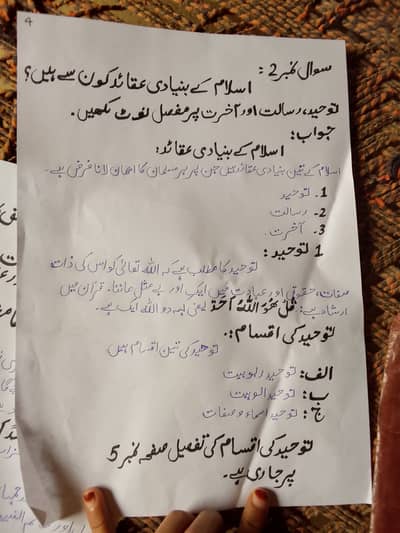 4
سوال نمبر 2:
اسلام کے بنیادی عقائد کون سے ہیں؟
توحید، رسالت اور آخرت پر مفصل نوٹ لکھیں.
جواب:
اسلام کے بنیادی عقائد:
اسلام کے تین بنیادی عقائد ہیں جن پر ہر مسلمان کا ایمان لانا فرض ہے۔
1. توحید
2. رسالت
3. آخرت
1 توحید:
توحید کا مطلب ہے کہ اللہ تعالیٰ کو اس کی ذات
صفات، حقوق اور عبادت میں ایک اور بے مثل ماننا۔ قرآن میں
ارشاد ہے: قُلْ هُوَ اللّٰهُ اَحَدٌ یعنی کہہ دو اللہ ایک ہے۔
توحید کی اقسام:
توحید کی تین اقسام ہیں
الف: توحید ربوبیت
ب: توحید الوہیت
ج: توحید اسماء و صفات
توحید کی اقسام کی تفصیل صفحہ نمبر 5
پر جاری ہے۔